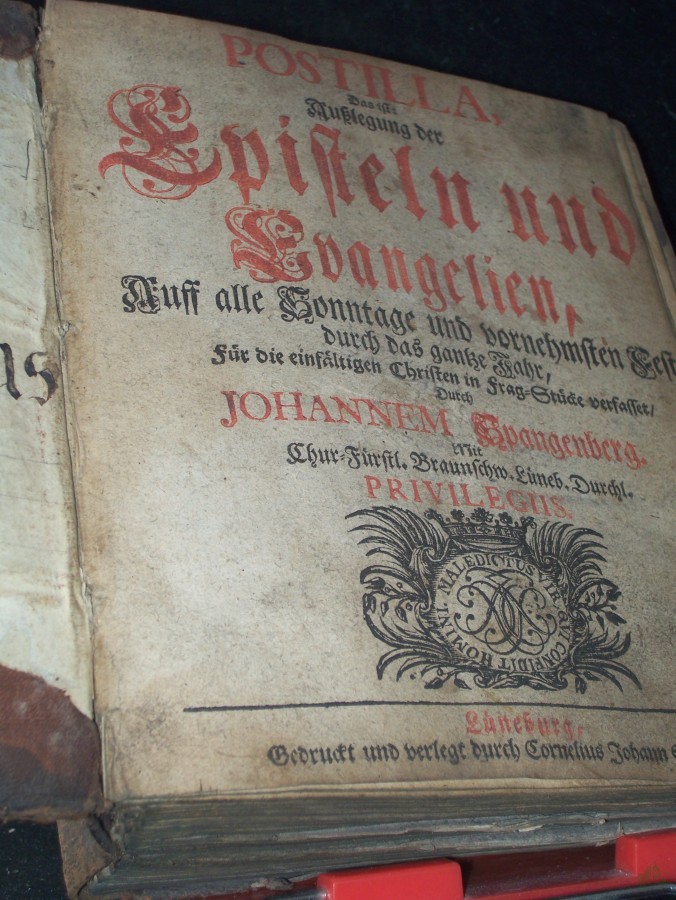 POSTILLA,
Das ist:
Außlegung der
Episteln und
Evangelien,
Auff alle Sonntage und vornehmsten Fest
durch das gantze Jahr,
Für die einfältigen Christen in Frag-Stücke verfasset/
Durch
JOHANNEM Spangenberg.
Mit
Chur-Fürstl. Braunschw. Lüneb. Durchl.
PRIVILEGIIS.
MALEDICTUS VIR QUI CONFIDIT HOMINI
Lüneburg/
Gedruckt und verlegt durch Cornelius Johann